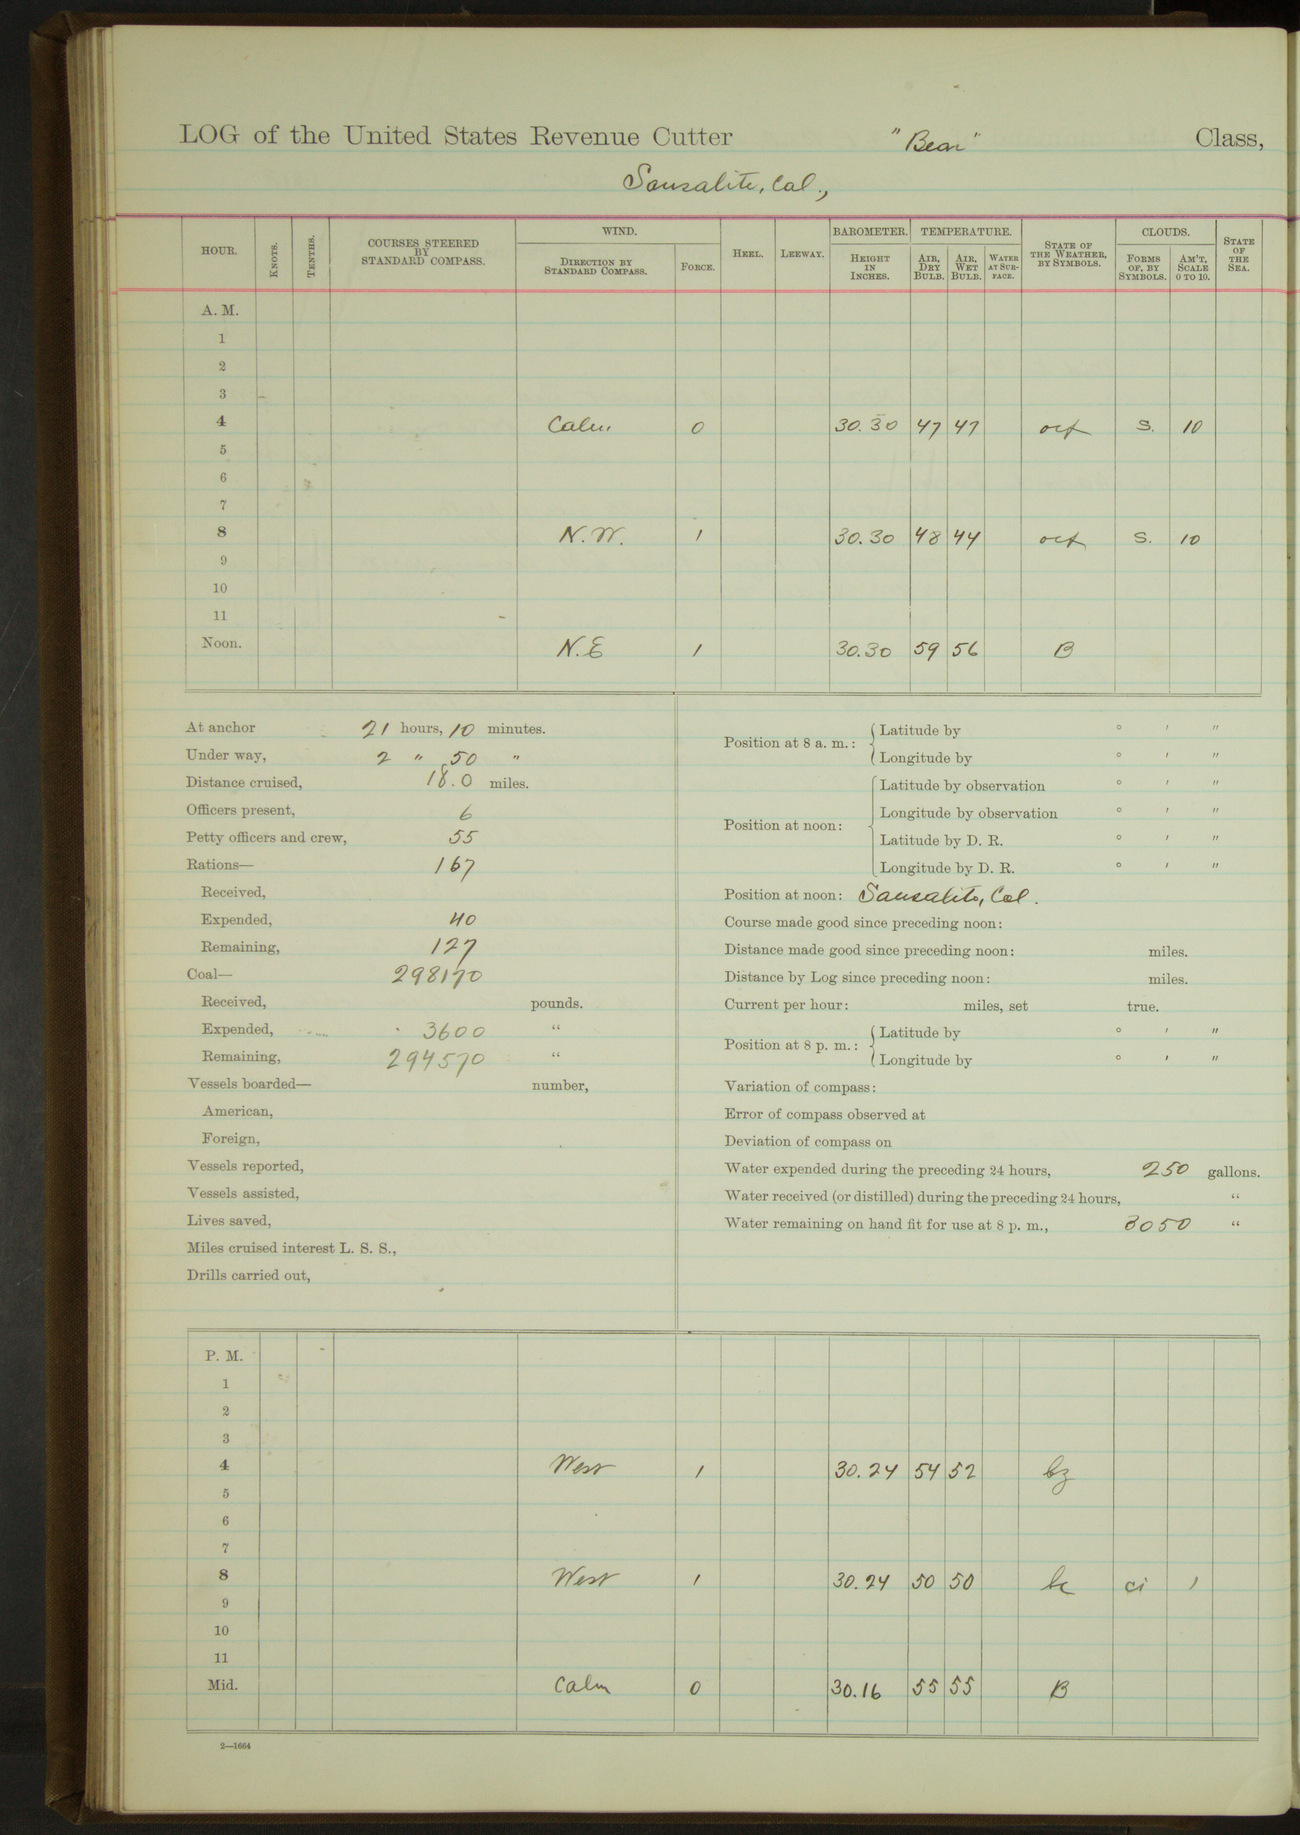 LOG of the United States Revenue Cutter "Bear" Class,
Sausalito, Cal.,
HOUR. KNOTS. TENTHS. COURSES STEERED BY STANDARD COMPASS. WIND. DIRECTION BY STANDARD COMPASS. FORCE. HEEL. LEEWAY. BAROMETER. HEIGHT IN INCHES. TEMPERATURE. AIR, DRY BULB. AIR, WET BULB. WATER AT SURFACE. STATE OF THE WEATHER, BY SYMBOLS. CLOUDS. FORMS OF, BY SYMBOLS. AM'T, SCALE 0 TO 10. STATE OF THE SEA.
A. M.
1
2
3
4 Calm 0 30.30 47 47 ocf S. 10
5
6
7
8 N.W. 1 30.30 48 44 ocf S. 10
9
10
11
Noon. N.E 1 30.30 59 56 B
At anchor 21 hours, 10 minutes.
Under way, 2 " 50 "
Distance cruised, 18.0 miles.
Officers present, 6
Petty officers and crew, 55
Rations— 167
Received,
Expended, 40
Remaining, 127
Coal— 298170
Received, pounds.
Expended, 3600 "
Remaining, 294570 "
Vessels boarded— number,
American,
Foreign,
Vessels reported,
Vessels assisted,
Lives saved,
Miles cruised interest L. S. S.,
Drills carried out,
Position at 8 a. m.: Latitude by ° ' "
Longitude by ° ' "
Position at noon: Latitude by observation ° ' "
Longitude by observation ° ' "
Latitude by D. R. ° ' "
Longitude by D. R. ° ' "
Position at noon: Sausalito, Cal.
Course made good since preceding noon:
Distance made good since preceding noon: miles.
Distance by Log since preceding noon: miles.
Current per hour: miles, set true.
Position at 8 p. m.: Latitude by ° ' "
Longitude by ° ' "
Variation of compass:
Error of compass observed at
Deviation of compass on
Water expended during the preceding 24 hours, 250 gallons.
Water received (or distilled) during the preceding 24 hours, "
Water remaining on hand fit for use at 8 p. m., 3050 "
P. M.
1
2
3
4 West 1 30.24 54 52 bz
5
6
7
8 West 1 30.24 50 50 bc ci 1
9
10
11
Mid. Calm 0 30.16 55 55 B
2—1664